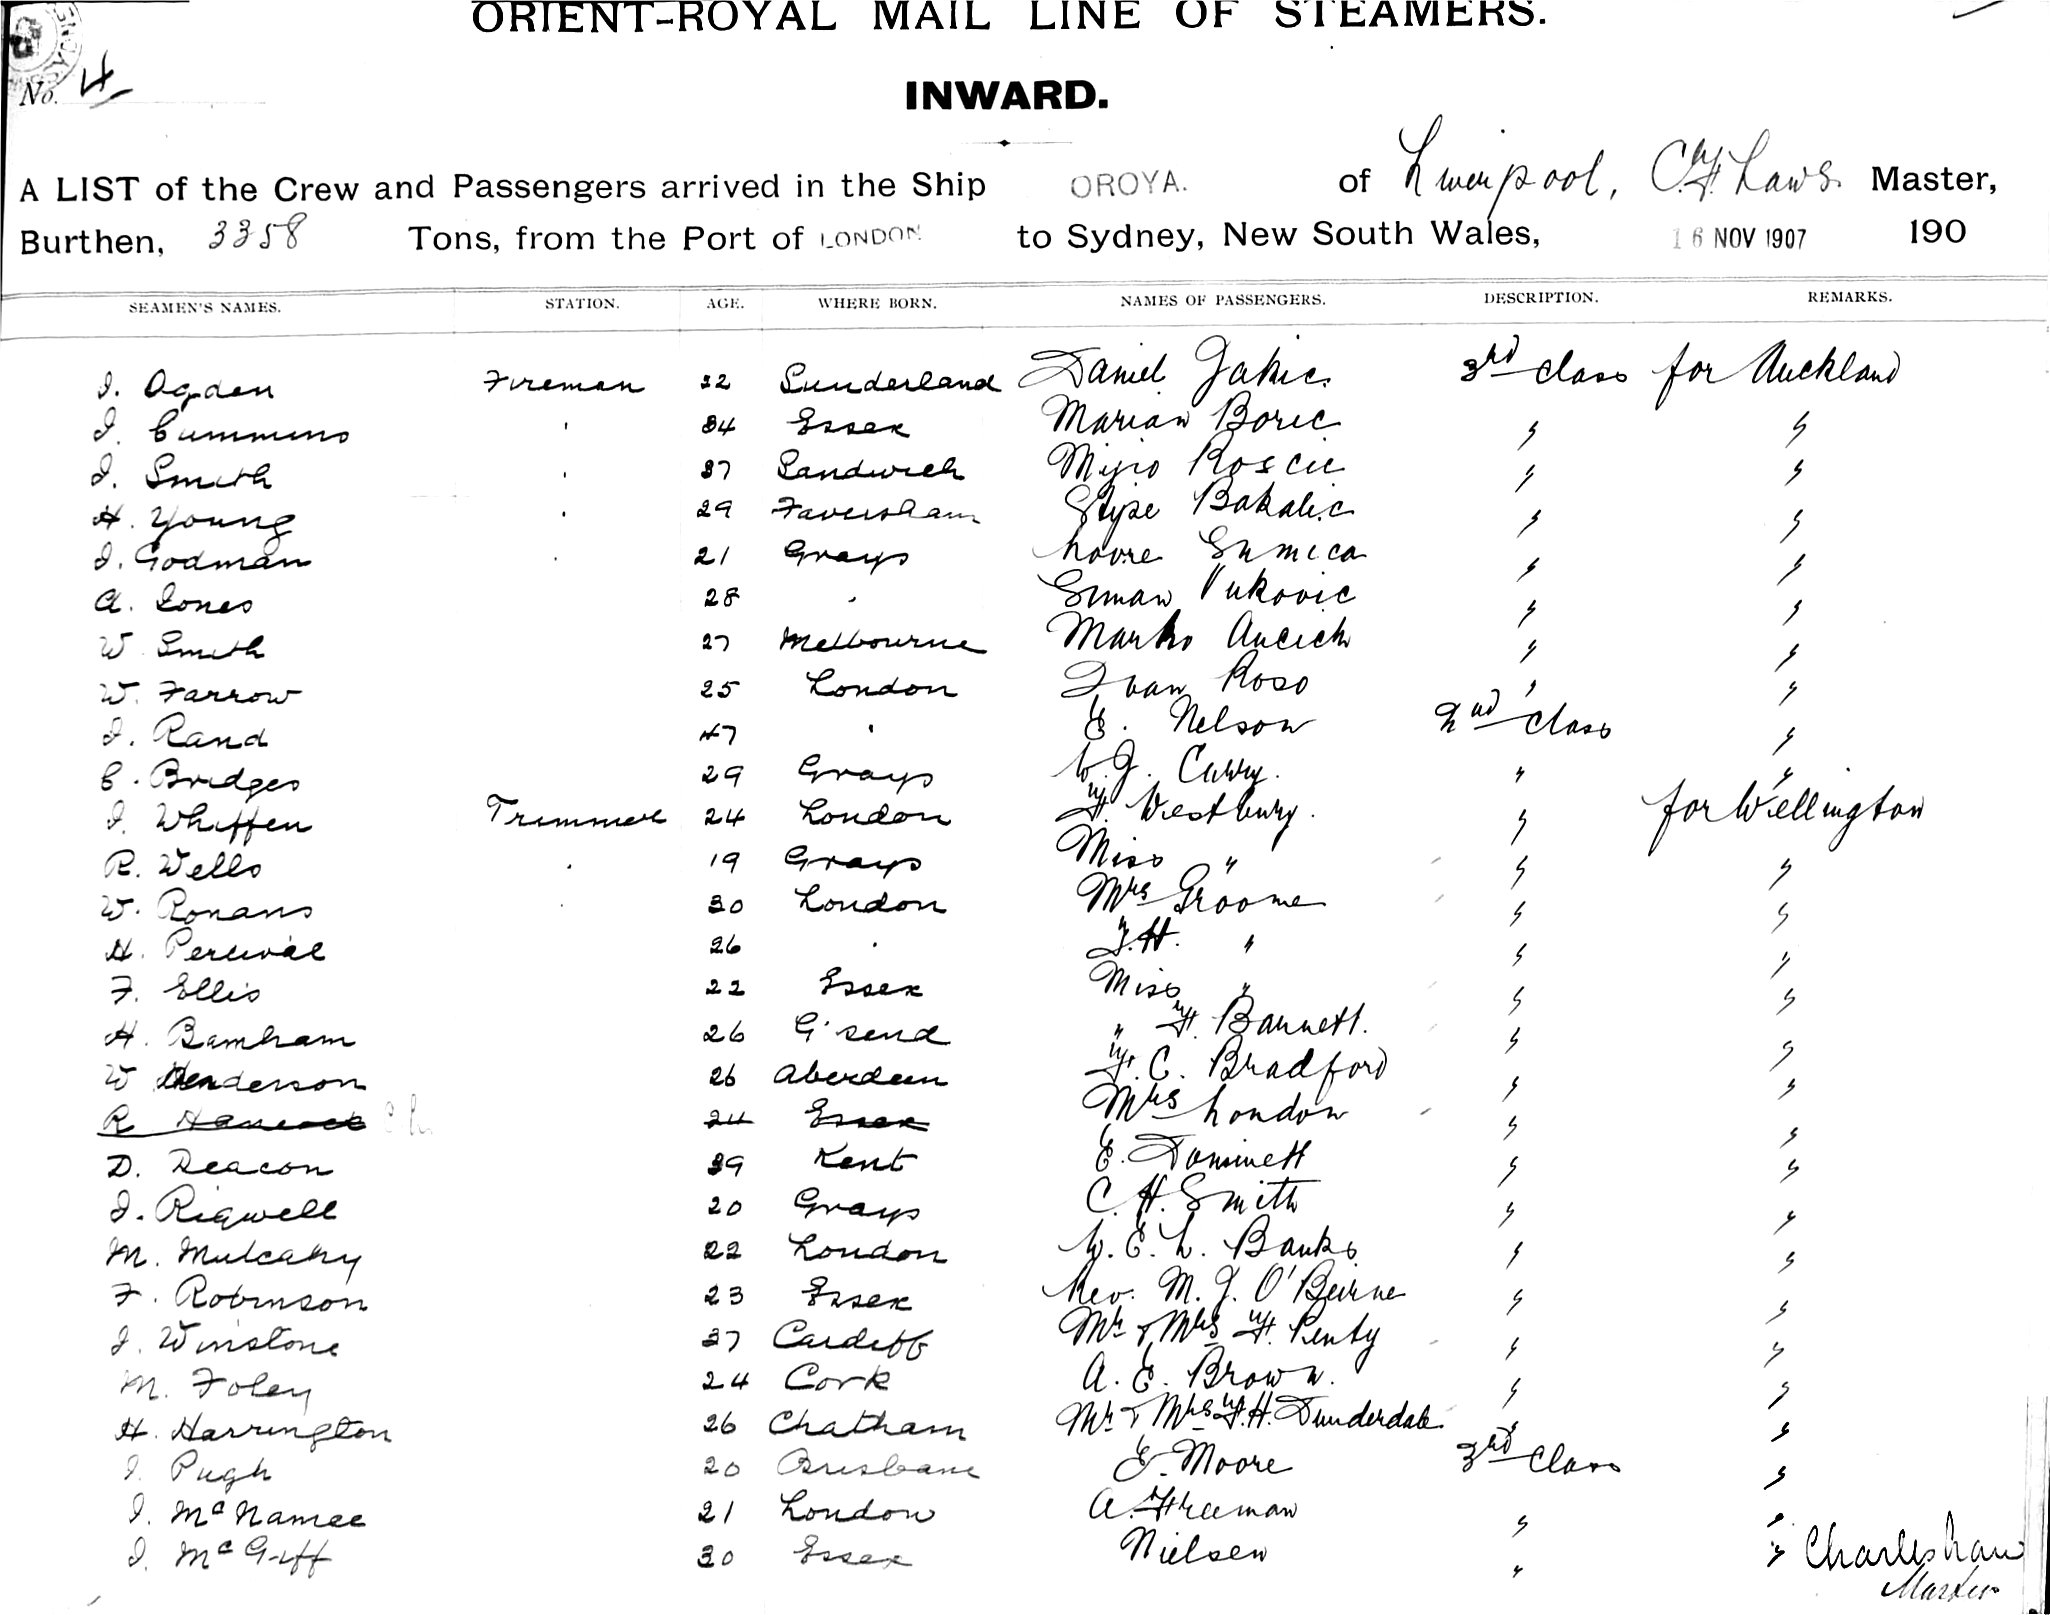 ORIENT-ROYAL MAIL LINE OF STEAMERS.
No. 4
INWARD.
A LIST of the Crew and Passengers arrived in the Ship OROYA. of Liverpool, C. F. Laws. Master,
Burthen, 3358 Tons, from the Port of LONDON to Sydney, New South Wales, 16 NOV 1907 190
SEAMEN'S NAMES. STATION. AGE. WHERE BORN. NAMES OF PASSENGERS. DESCRIPTION. REMARKS.
J. Ogden Fireman 32 Sunderland Daniel Jakic 3rd class for Auckland
J. Cummins " 34 Essex Marian Boric " "
J. Smith " 37 Sandwich Mijio Roscic " "
H. Young " 29 Faversham Stipe Bakalic " "
J. Godman " 21 Grays Lovre Sumica " "
A. Jones 28 " Siman Vukovic " "
W. Smith 27 Melbourne Marko Ancich " "
W. Farrow 25 London Ivan Roso " "
J. Rand 47 " E. Nelson 2nd class "
C. Bridges 29 Grays W. J. Curry. " "
J. Whiffen Trimmer 24 London F. Westbury. " for Wellington
R. Wells " 19 Grays Miss " " "
W. Ronans " 30 London Mrs Groome " "
H. Percival 26 " J. H. " " "
F. Ellis 22 Essex Miss " " "
H. Bamham 26 G'send " F. Barnett. " "
W Henderson 26 Aberdeen F. C. Bradford " "
R Hancock 24 Essex Mrs London " "
D. Deacon 39 Kent E. Domınett " "
J. Rigwell 20 Grays C. H. Smith " "
M. Mulcahy 22 London W. E. L. Banks " "
F. Robinson 23 Essex Rev. M. J. O'Beirne " "
J. Winstone 37 Cardiff Mr & Mrs F. Penty " "
M. Foley 24 Cork A. E. Brown. " "
H. Harrington 26 Chatham Mr & Mrs F. H. Dunderdale " "
J. Pugh 20 Brisbane E. Moore 3rd Class "
J. McNamee 21 London A. Freeman " "
J. McGiff 30 Essex Nielsen " " Charles Laws
Master